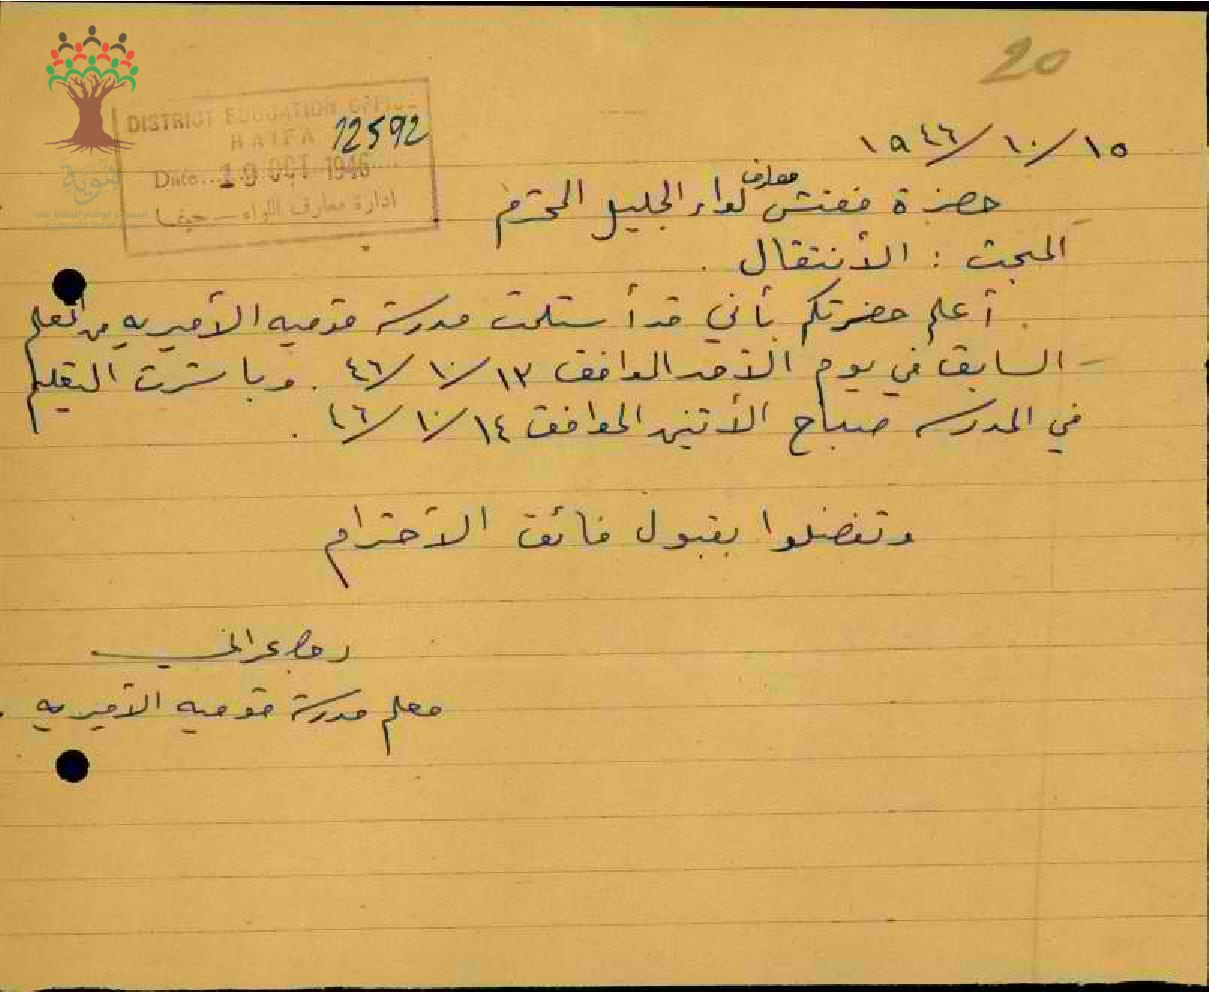 20
DISTRICT EDUCATION OFFICE
HAIFA 12592
Date... 19 OCT 1946
ادارة معارف اللواء - حيفا
هوية
١٥/١٠/١٩٤٦
حضرة مفتش معارف لواء الجليل المحترم
المبحث : الأنتقال .
أعلم حضرتكم بأني قد أستلمت مدرسة قوميه الأميريه من المعلم
السابق في يوم الأحد الموافق ١٣/١٠/٤٦ . وباشرت التعليم
في المدرسه صباح الأثنين الموافق ١٤/١٠/٤٦ .
وتفضلوا بقبول فائق الأحترام
معلم مدرسة قوميه الأميريه .